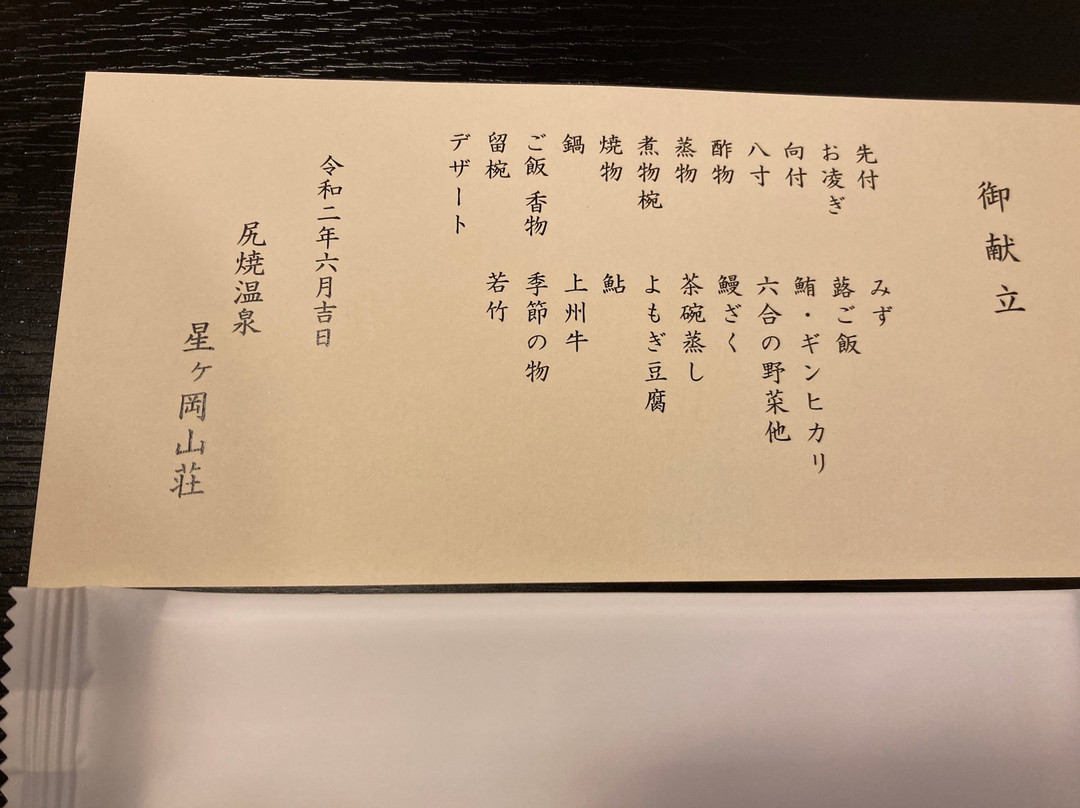 御献立
先付 みず
お凌ぎ 蕗ご飯
向付 鮪・ギンヒカリ
八寸 六合の野菜他
酢物 鰻ざく
蒸物 茶碗蒸し
煮物椀 よもぎ豆腐
焼物 鮎
鍋 上州牛
ご飯 香物 季節の物
留椀 若竹
デザート
令和二年六月吉日
尻焼温泉
星ヶ岡山荘